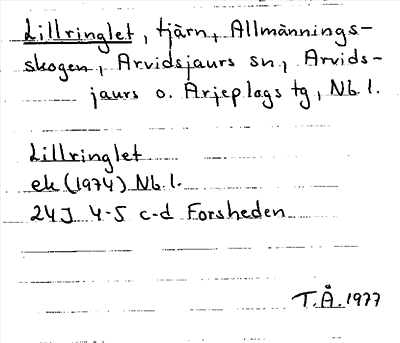 Lillringlet, tjärn, Allmännings-
skogen, Arvidsjaurs sn, Arvids-
jaurs o. Arjeplogs tg, Nb. l.
Lillringlet
ek (1974) Nb. l.
24J 4-5 c-d Forsheden
T.Å. 1977